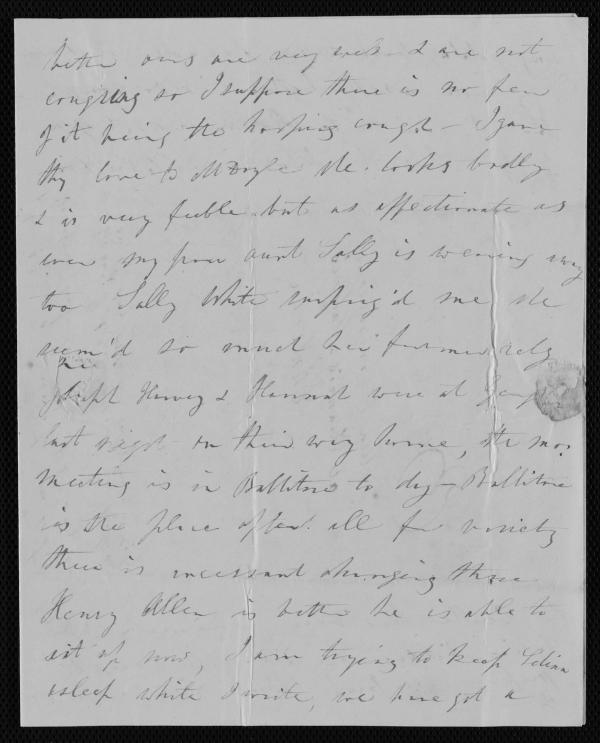 better ours are very well & are not
coughing so I suppose there is no fear
of it being the hooping cough - I gave
thy love to M Doyle she looks badly
& is very feeble but as affectionate as
ever my poor aunt Sally is wearing away
too Sally White surpriz'd me she
seem'd so much her former self
Joseph Harvey & Hannah were at
last night on their way home, the mo.
meeting is in Ballitore to day - Ballitore
is the place after all for variety
there is incessant changing there
Henry Allen is better he is able to
sit up now, I am trying to keep Selina
asleep while I write, we have got a